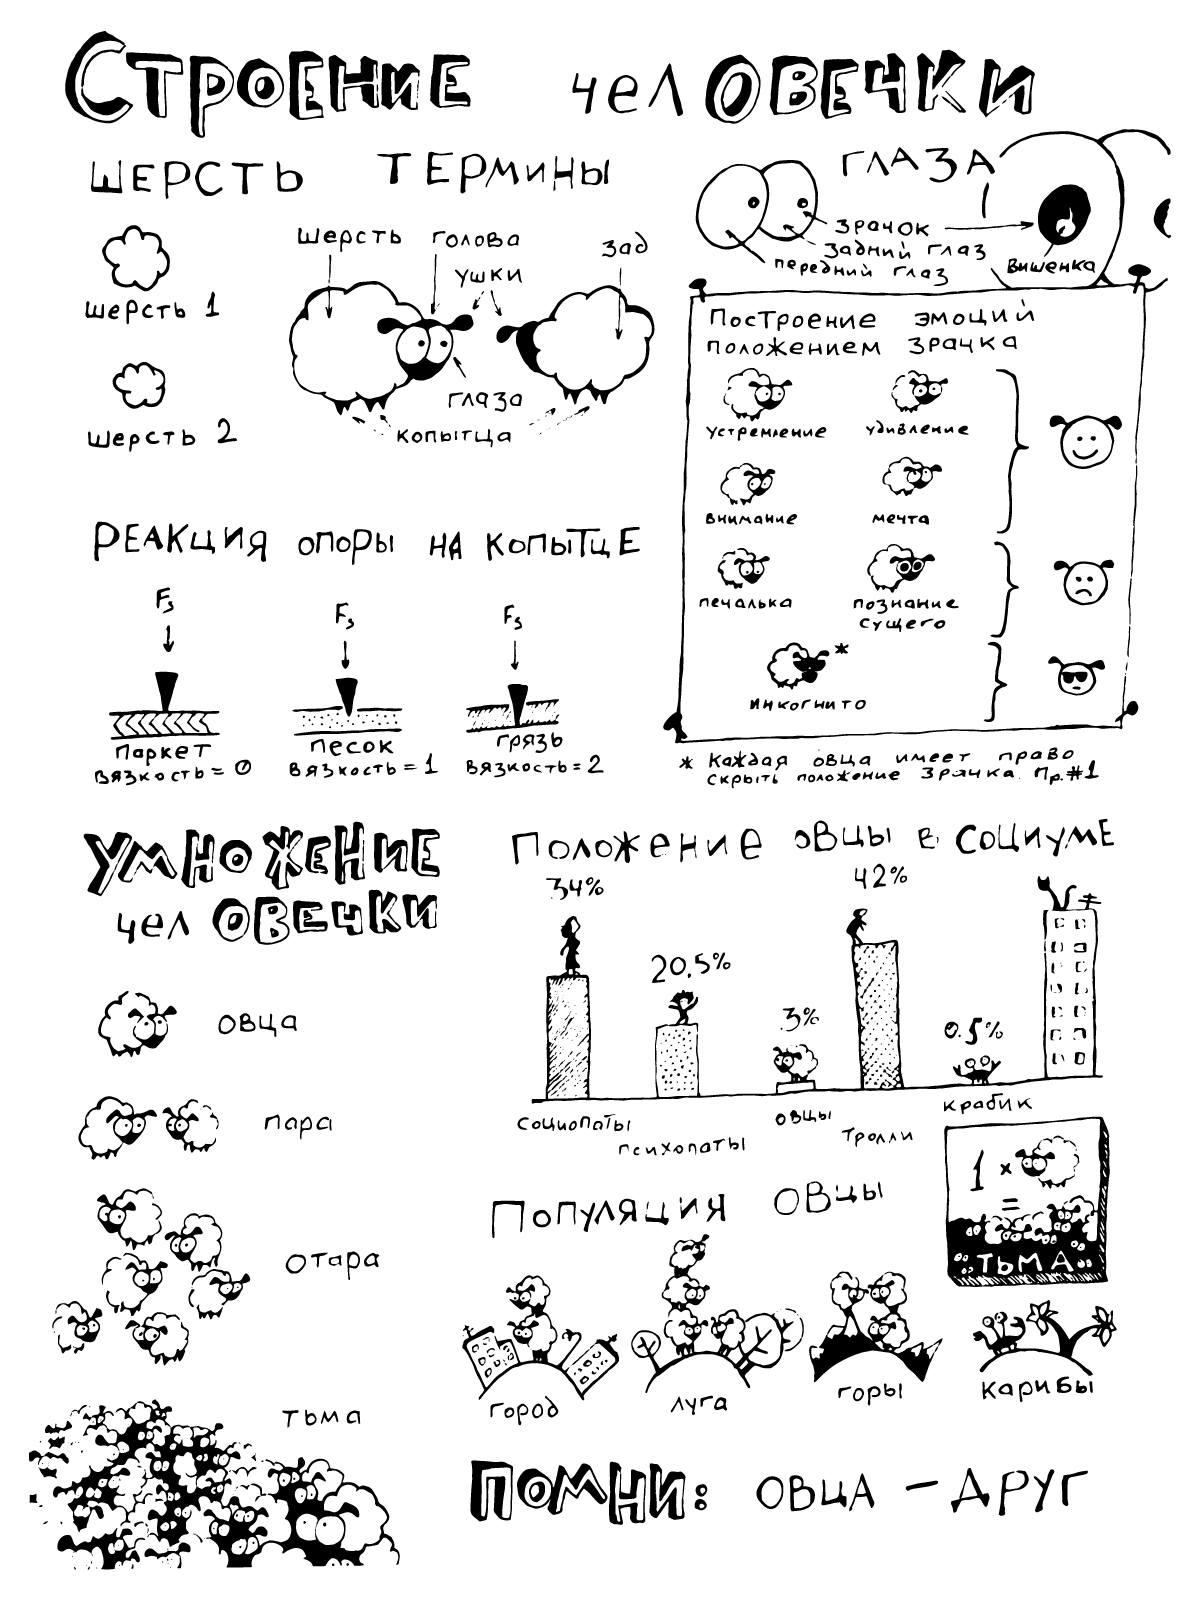 Строение челОВЕЧКИ
ШЕРСТЬ
шерсть 1
шерсть 2
ТЕРМИНЫ
шерсть
голова
ушки
зад
глаза
копытца
ГЛАЗА
зрачок
задний глаз
передний глаз
вишенка
Построение эмоций
положением зрачка
устремление
удивление
внимание
мечта
печалька
познание
сущего
инкогнито
*
* Каждая овца имеет право
скрыть положение зрачка. Пр.#1
РЕАКЦИЯ ОПОРЫ НА КОПЫТЦЕ
Fз
Fз
Fз
паркет
вязкость = 0
песок
вязкость = 1
грязь
вязкость = 2
УМНОЖЕНИЕ
челОВЕЧКИ
овца
пара
отара
тьма
Положение овцы в социуме
34%
20.5%
3%
42%
0.5%
социопаты
психопаты
овцы
тролли
крабик
1 ×
=
ТЬМА
Популяция овцы
город
луга
горы
карибы
ПОМНИ: ОВЦА – ДРУГ